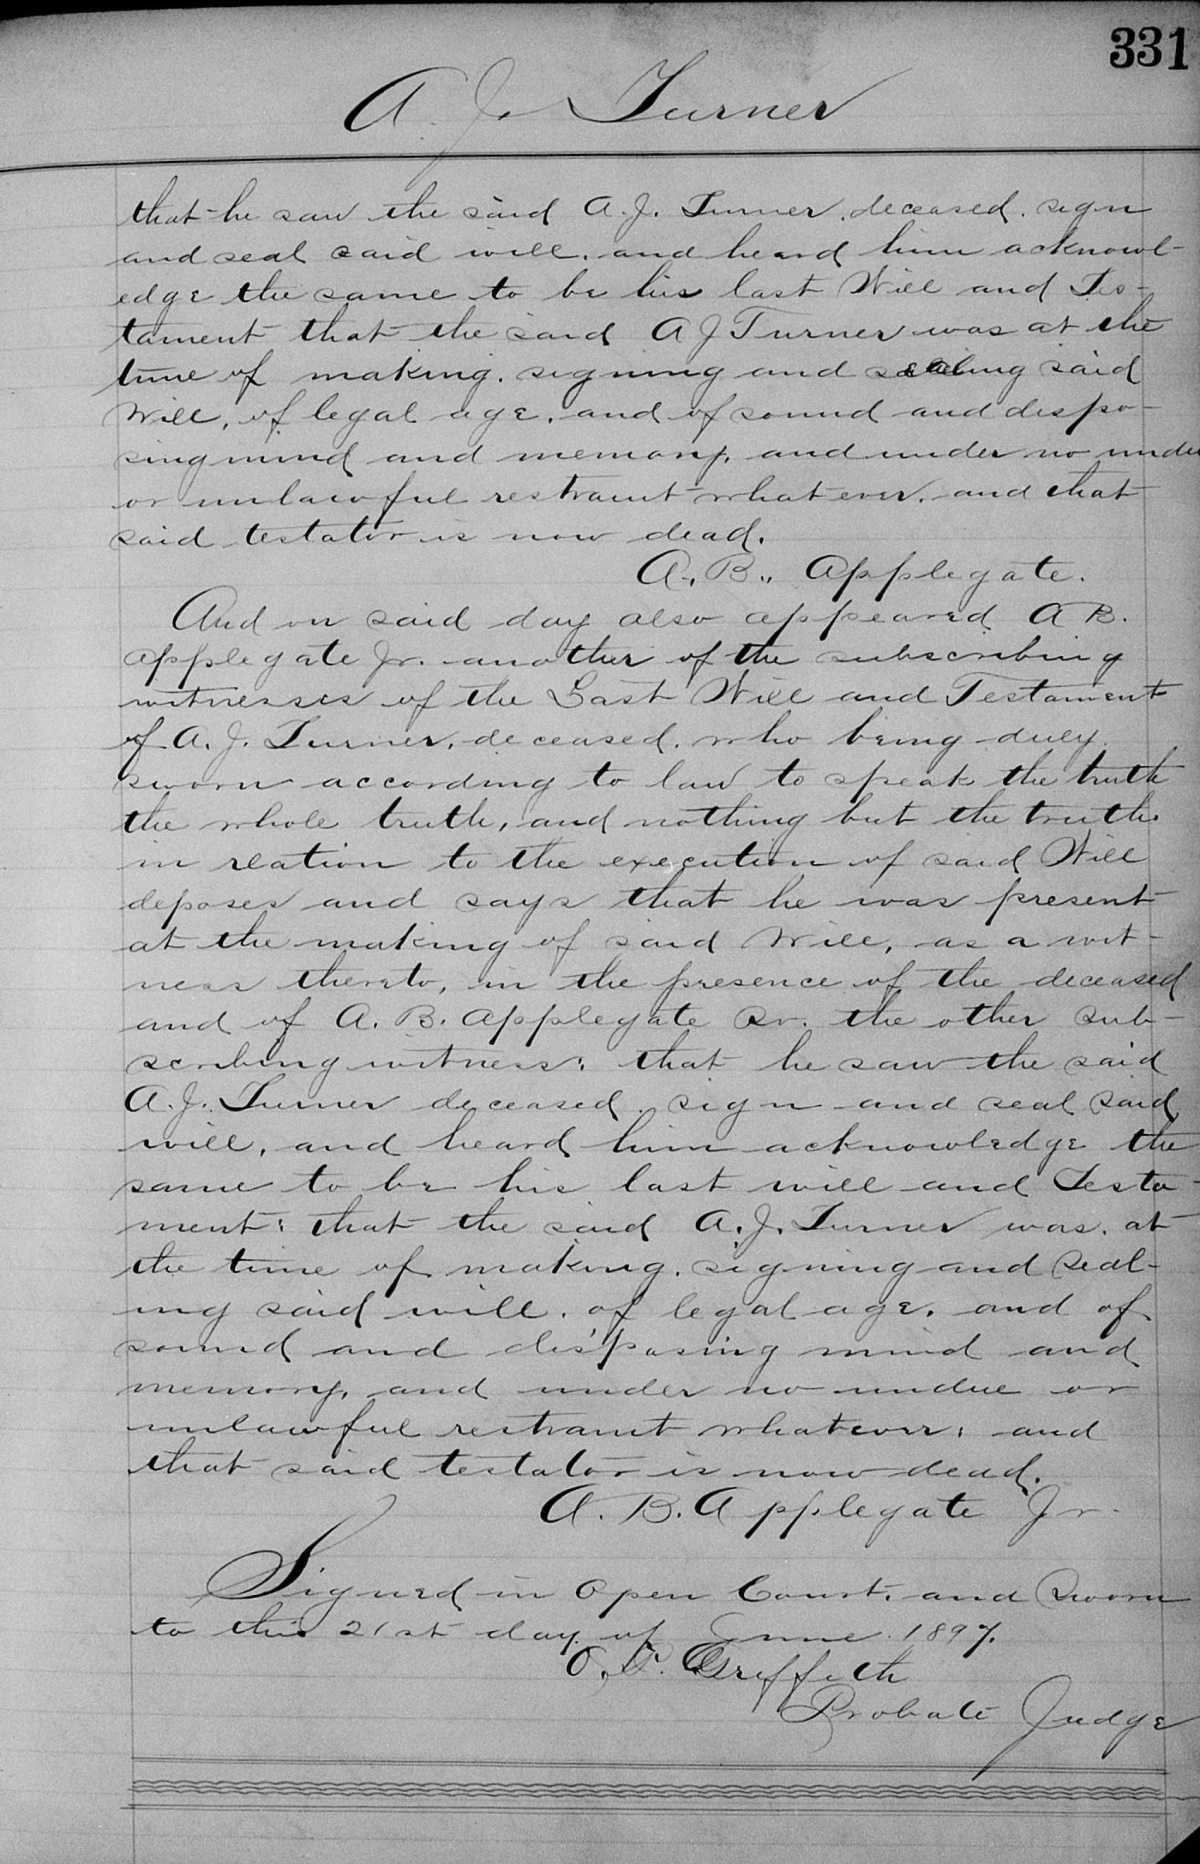 331
A. J. Turner
that he saw the said A. J. Turner, deceased, sign
and seal said will, and heard him acknowl-
edge the same to be his last Will and Tes-
tament that the said A J Turner was at the
time of making, signing and sealing said
Will, of legal age, and of sound and dispo-
sing mind and memory, and under no undue
or unlawful restraint whatever, and that
said testator is now dead.
A. B. Applegate.
And on said day also appeared A B.
Applegate Jr. another of the subscribing
witnesses of the Last Will and Testament
of A. J. Turner, deceased, who being duly
sworn according to law to speak the truth
the whole truth, and nothing but the truth.
in rlation to the execution of said Will
deposes and says that he was present
at the making of said Will, as a wit-
ness thereto, in the presence of the deceased
and of A. B. Applegate Sr. the other sub-
scribing witness; that he saw the said
A. J. Turner deceased, sign and seal said
will, and heard him acknowledge the
same to be his last will and Testa-
ment; that the said A. J. Turner was, at
the time of making, signing and seal-
ing said will, of legal age, and of
sound and disposing mind and
memory, and under no undue or
unlawful restraint whatever; and
that said testator is now dead.
A. B. Applegate Jr.
Signed in Open Court, and Sworn
to this 21st day of June 1897.
Griffith
Probate Judge